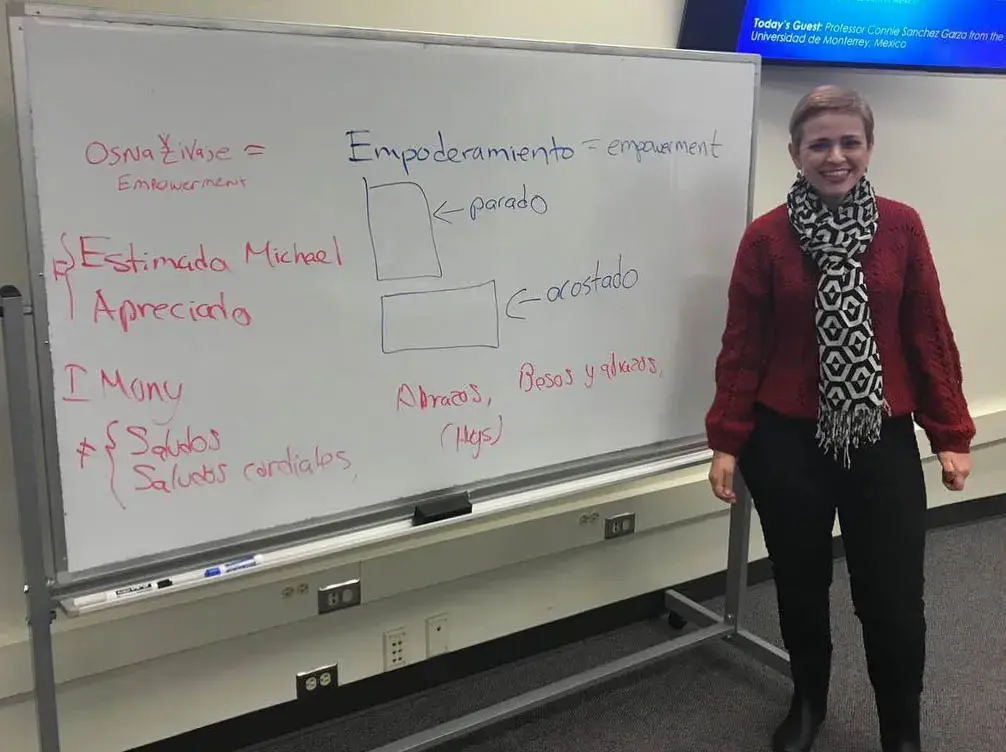 Today's Guest: Professor Connie Sanchez Garza from the
Universidad de Monterrey, Mexico
OSNaŽiVaJe =
EMPOWERMENT
Empoderamiento = empowerment
← parado
← acostado
Estimada Michael
Apreciado
I Many
* Saludos
Saludos cordiales,
Abrazos, Besos y abrazos,
(Hgs)